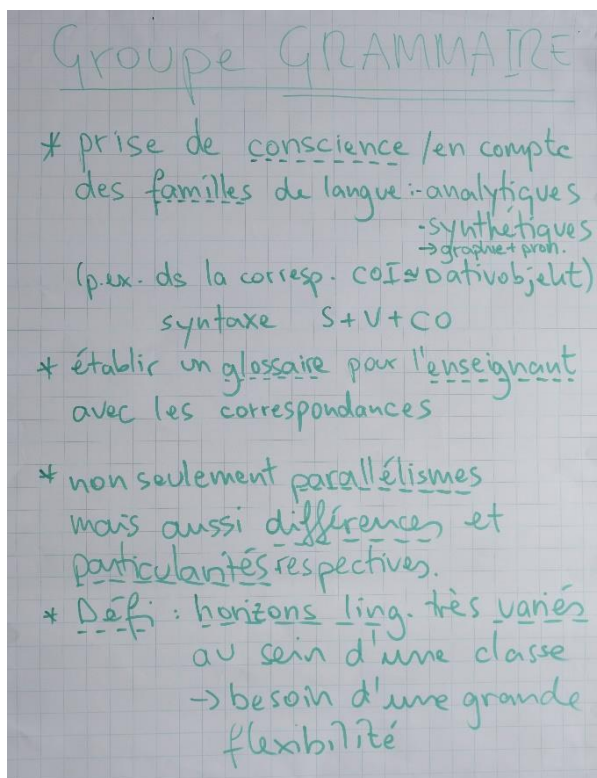 Groupe GRAMMAIRE
* prise de conscience / en compte
des familles de langue :- analytiques
- synthétiques
→ graphie + pron.
(p.ex. ds la corresp. COI ≈ Dativobjekt)
syntaxe S+V+CO
* établir un glossaire pour l'enseignant
avec les correspondances
* non seulement parallélismes
mais aussi différences et
particularités respectives.
* Défi : horizons ling. très variés
au sein d'une classe
→ besoin d'une grande
flexibilité